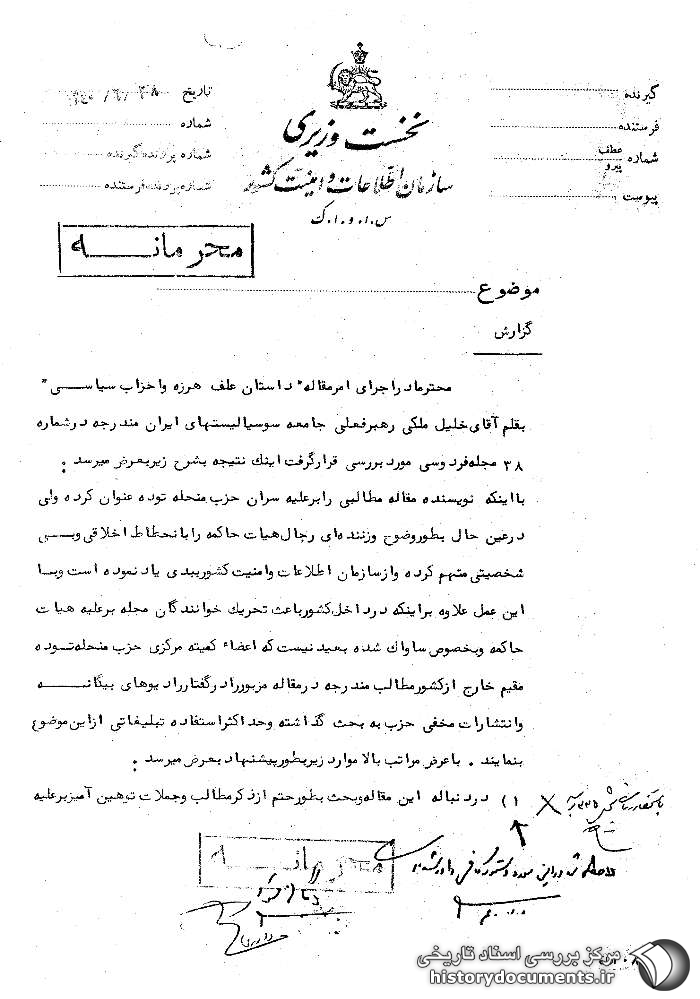 تاریخ ۲۸ / ۶ / ۱۳۴۰
شماره
شماره پرونده گیرنده
شماره پرونده فرستنده
نخست وزیری
سازمان اطلاعات و امنیت کشور
س.ا.و.ا.ک
گیرنده
فرستنده
شماره عطف پیرو
پیوست
محرمانــه
موضوع
گزارش
محترماً در اجرای امر مقاله " داستان علف هرزه و احزاب سیاســی "
بقلم آقای خلیل ملکی رهبر فعلی جامعه سوسیالیستهای ایران مندرجه در شماره
۳۸ مجله فردوسی مورد بررسی قرار گرفت اینك نتیجه بشرح زیر بعرض میرسد :
با اینکه نویسنده مقاله مطالبی را بر علیه سران حزب منحله توده عنوان کرده ولی
در عین حال بطور وضوح وزننده ای رجال هیات حاکمه را با نحطاط اخلاقی وبــی
شخصیتی متهم کرده و از سازمان اطلاعات وامنیت کشور ببدی یاد نموده است وبــا
این عمل علاوه بر اینکه در داخل کشور باعث تحریك خوانندگان مجله بر علیه هیات
حاکمه وبخصوص ساواك شده بعید نیست که اعضاء کمیته مرکزی حزب منحله تــوده
مقیم خارج از کشور مطالب مندرجه در مقاله مزبور را در گفتار رادیوهای بیگانــــه
وانتشارات مخفی حزب به بحث گذاشته وحداکثر استفاده تبلیغاتی از این موضوع
بنمایند . با عرض مراتب بالا موارد زیر بطور پیشنهاد بعرض میرسد :
۱) در دنباله این مقاله وبحث بطور حتم از ذکر مطالب وجملات توهین آمیز بر علیه
محرمانــه
ملاحظه شد در این مورد دستور کافی داده شده
مرکز بررسی اسناد تاریخی
historydocuments.ir